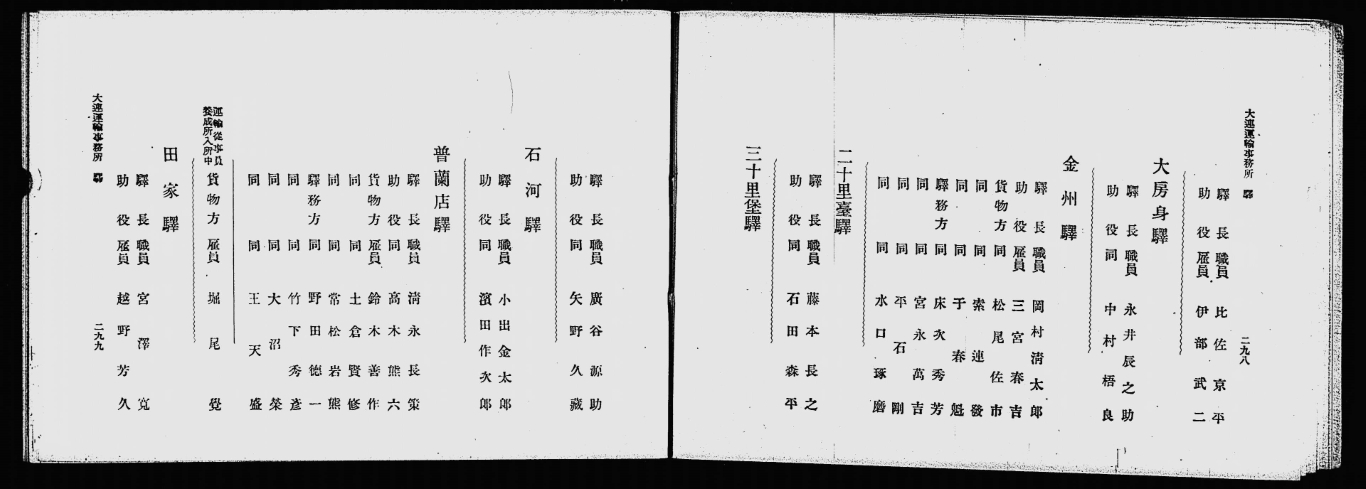 大連運輸事務所 驛
二九八
驛長 職員 比佐京平
助役 雇員 伊部武二
大房身驛
驛長 職員 永井辰之助
助役 同 中村梧良
金州驛
驛長 職員 岡村淸太郎
助役 雇員 三宮春吉
貨物方 同 松尾佐市
同 同 索連發
同 同 于春魁
驛務方 同 床次秀芳
同 同 宮永萬吉
同 同 平石剛
同 同 水口琢磨
二十里臺驛
驛長 職員 藤本長之
助役 同 石田森平
三十里堡驛
驛長 職員 廣谷源助
助役 同 矢野久藏
石河驛
驛長 職員 小出金太郎
助役 同 濱田作次郎
普蘭店驛
驛長 職員 淸永長策
助役 同 高木熊六
貨物方 雇員 鈴木善作
同 同 土倉賢修
同 同 常松岩熊
驛務方 同 野田德一
同 同 竹下秀彥
同 同 大沼榮
同 同 王天盛
運輸從事員養成所入所中 貨物方 雇員 堀尾覺
田家驛
驛長 職員 宮澤寬
助役 雇員 越野芳久
大連運輸事務所 驛
二九九